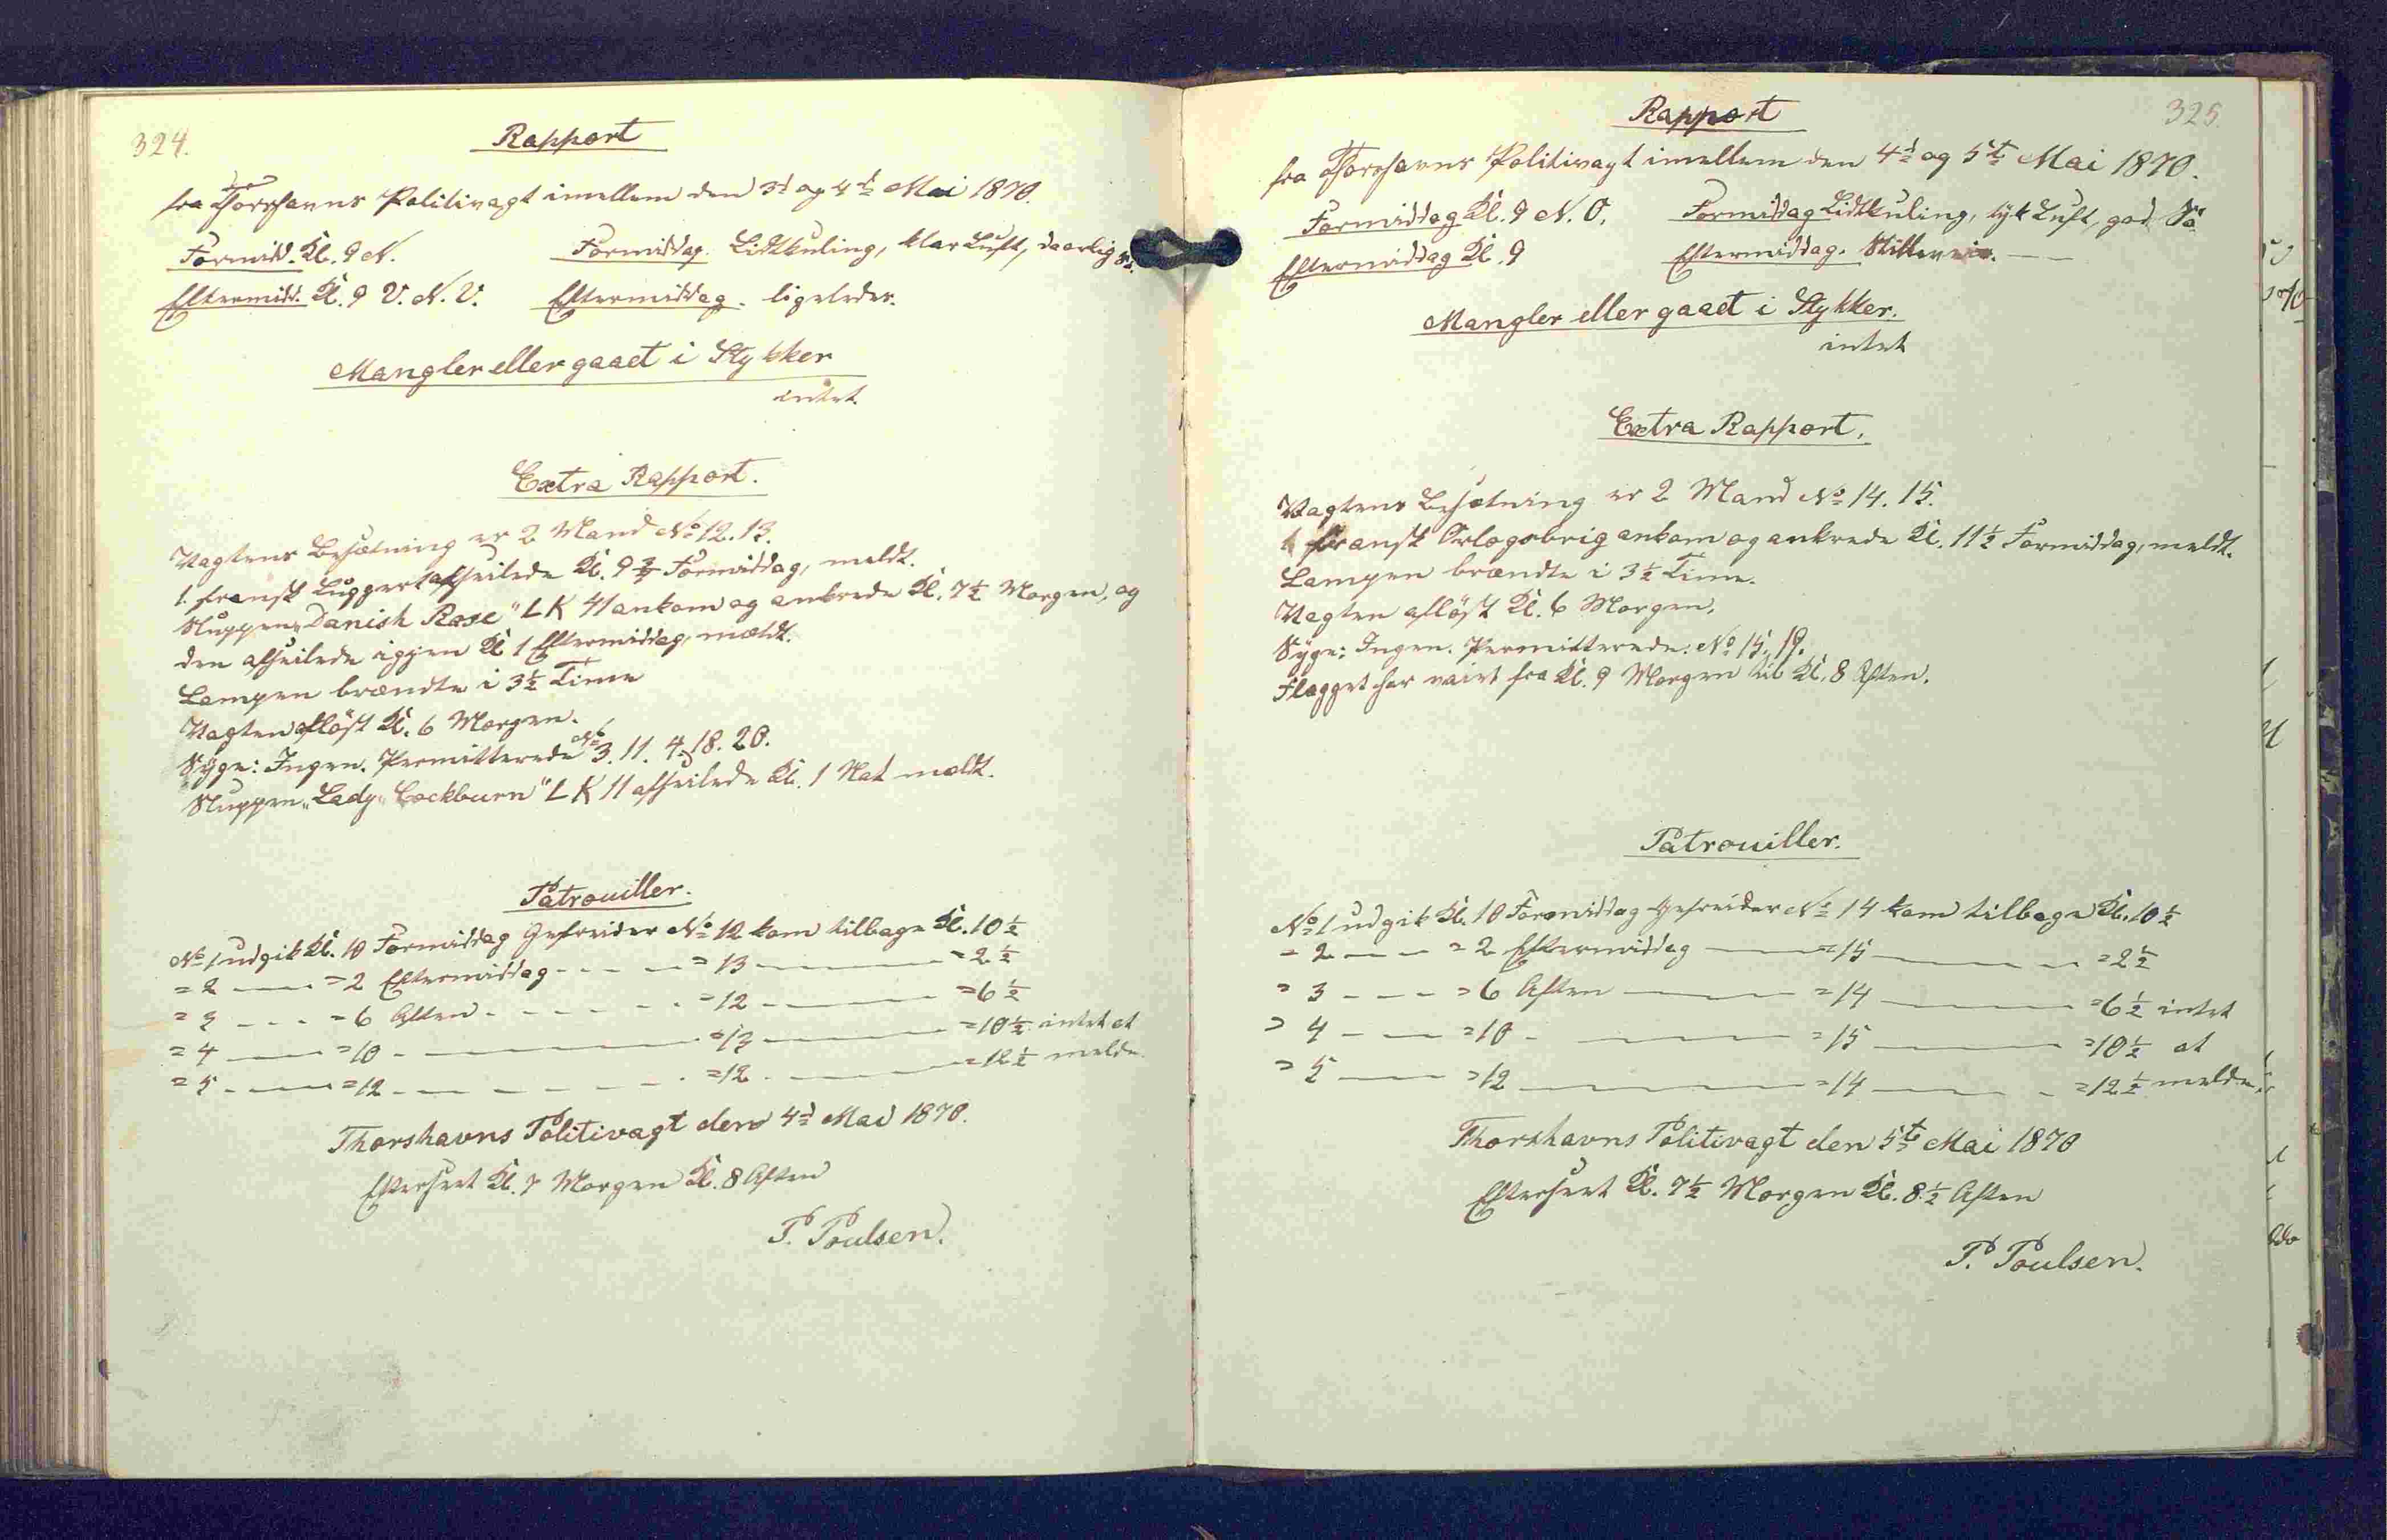 324.
Rapport
fra Thorshavns Politivagt imellem den 3d og 4d Mai 1870.
Formidd. Kl. 9 N. Formiddag. Lidtkuling, klar Luft, daarlig Sö.
Eftermidd. Kl. 9 V. N. V. Eftermiddag. ligeledes.
Mangler eller gaaet i Stykker
intet.
Extra Rapport.
Vagtens Besætning er 2 Mand No 12. 13.
1. fransk Lugger afseilede Kl. 9 Formiddag, meldt.
Sluppen „Danish Rose" LK 41 ankom og ankrede Kl. 7½ Morgen, og
den afseilede igjen Kl 1 Eftermiddag, meldt.
Lampen brændte i 3½ Time
Vagten aflöst Kl. 6 Morgen.
Syge: Ingen. Permitterede No 3. 11. 4. 18. 20.
Sluppen „Lady Cockburn" LK 11 afseilede Kl. 1 Nat meldt.
Patrouiller.
No 1 udgik Kl. 10 Formiddag Gefreider No 12 kom tilbage Kl. 10½
= 2 — = 2 Eftermiddag - - - = 13 — = 2½
= 3 - - - = 6 Aften - - - = 12 — = 6½
= 4 — = 10 - — = 13 — = 10½ intet at
= 5 - — = 12 - — = 12 - — = 12½ melde.
Thorshavns Politivagt den 4d Mai 1870.
Efterseet Kl. 7 Morgen Kl. 8 Aften
P. Poulsen.
325.
Rapport
fra Thorshavns Politivagt imellem den 4d og 5te Mai 1870.
Formiddag Kl. 9 N. O. Formiddag Lidtkuling, tyk Luft, god Sö
Eftermiddag Kl. 9 Eftermiddag. Stille —
Mangler eller gaaet i Stykker.
intet
Extra Rapport.
Vagtens Besætning er 2 Mand No 14. 15.
1 fransk Orlogsbrig ankom og ankrede Kl. 11½ Formiddag, meldt.
Lampen brændte i 3½ Time.
Vagten aflöst Kl. 6 Morgen.
Syge: Ingen. Permitterede: No 15. 19.
Flagget har vaiet fra Kl. 9 Morgen til Kl. 8 Aften.
Patrouiller.
No 1 udgik Kl. 10 Formiddag Gefreider No 14 kom tilbage Kl. 10½
= 2 — - = 2 Eftermiddag — = 15 — = 2½
= 3 - - - = 6 Aften — = 14 — = 6½ intet
= 4 - — = 10 - — = 15 — = 10½ at
= 5 — = 12 — = 14 — = 12½ melde.
Thorshavns Politivagt den 5te Mai 1870
Efterseet Kl. 7½ Morgen Kl. 8½ Aften
P. Poulsen.